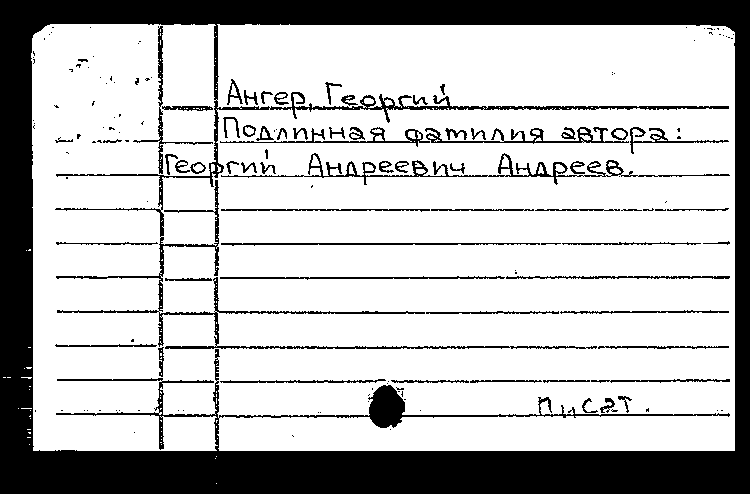 Ангер, Георгий
Подлинная фамилия автора:
Георгий Андреевич Андреев.
писат.